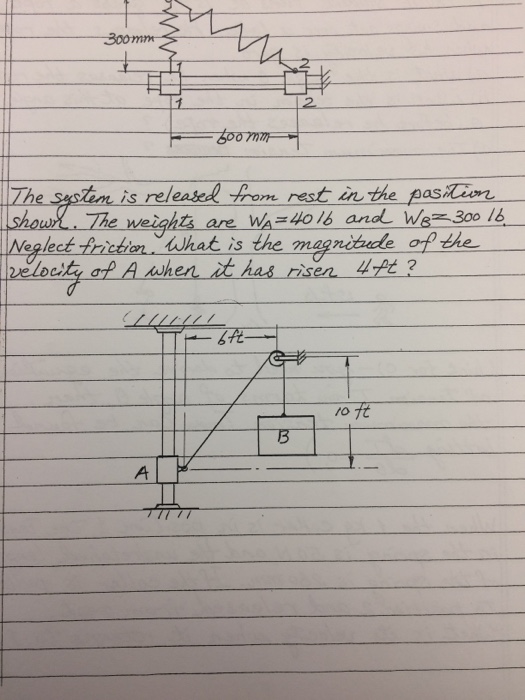 300mm
1
2
1
2
600 mm
The system is released from rest in the position
shown. The weights are WA=40 lb and WB=300 lb.
Neglect friction. What is the magnitude of the
velocity of A when it has risen 4ft?
6ft
10 ft
B
A